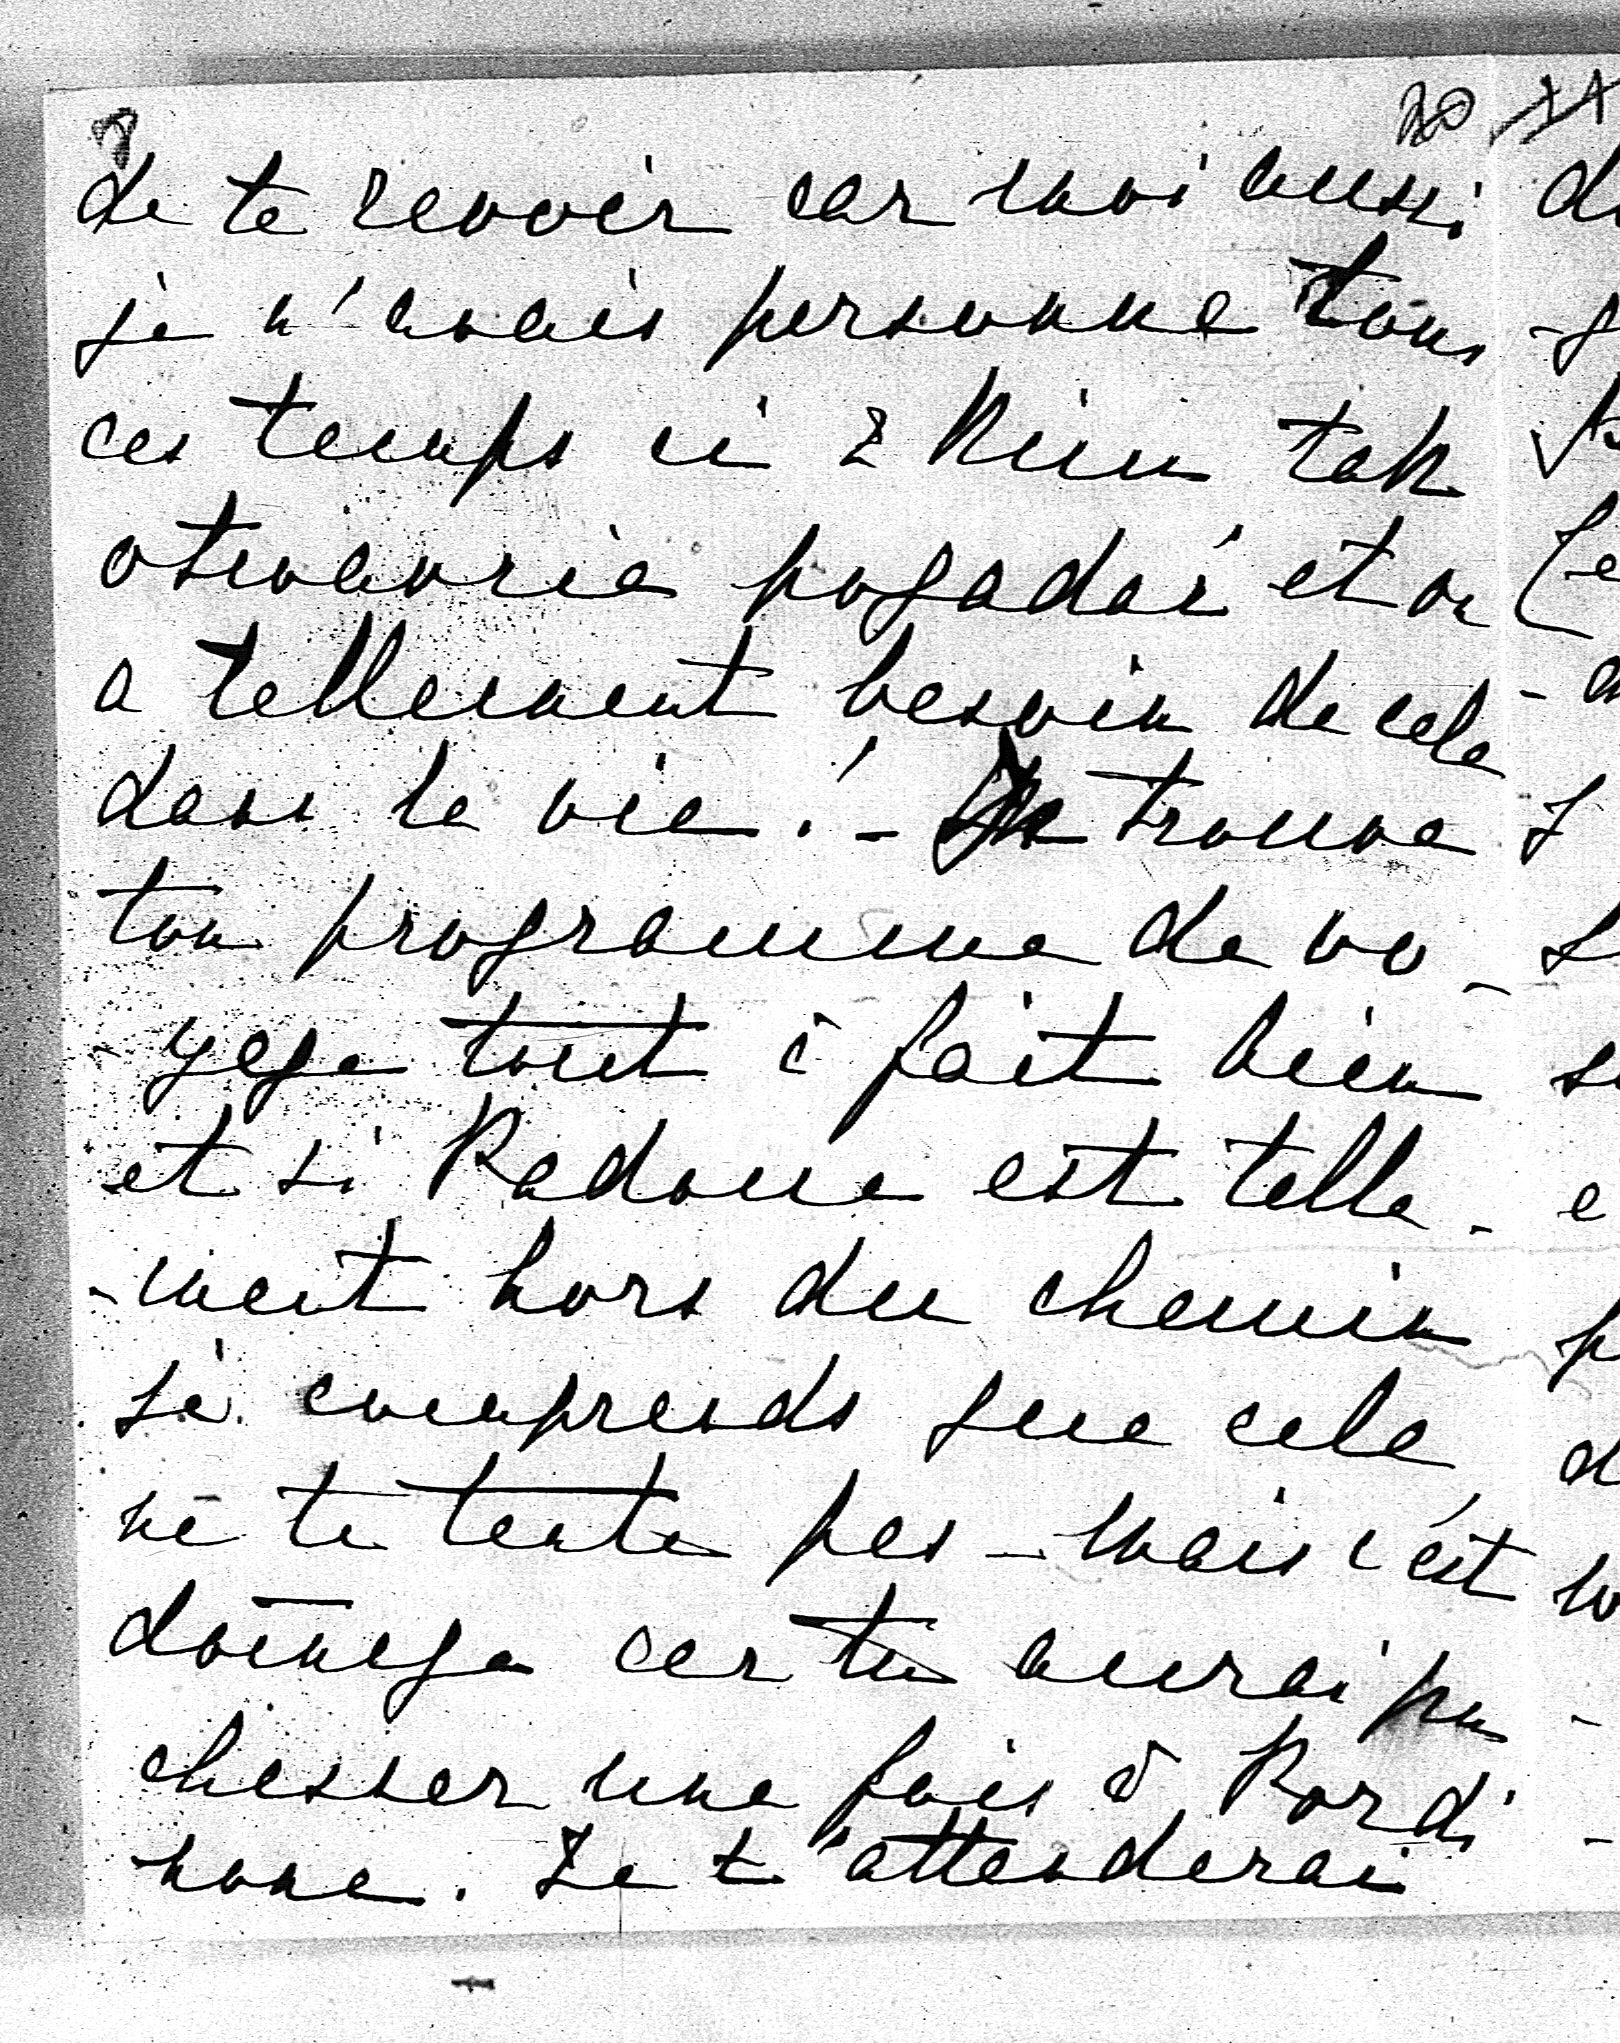 8
20
de te revoir car moi aussi
je n'avais personne tous
ces temps ci z kim tak
otwarcie pogadać et on
a tellement besoin de cela
dans la vie! - Je trouve
ton programme de vo-
-yage tout à fait bien
et si Padoue est telle-
-ment hors du chemin
je comprends que cela
ne te tente pas - mais c'est
domage car tu aurai pu
chasser une fois à Pordi
none. Je t'attenderai